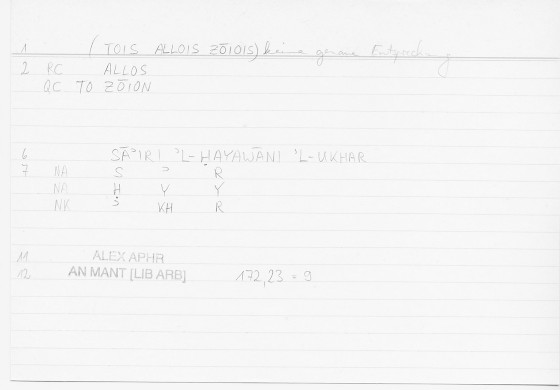 1 ( TOIS ALLOIS ZŌIOIS) keine genaue Entsprechung
2 PC ALLOS
QC TO ZŌION
6 SĀʾIRI ʾL-ḤAYAWĀNI ʾL-UKHAR
7 NA S ʾ R
NA Ḥ Y Y
NK ʾ KH R
11 ALEX APHR
12 AN MANT [LIB ARB] 172,23 = 9